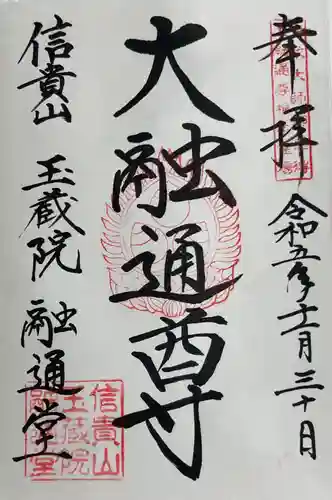 奉拝
令和五年十二月三十日
大融通尊
信貴山
玉蔵院
融通堂
信貴山
玉蔵院
融通堂